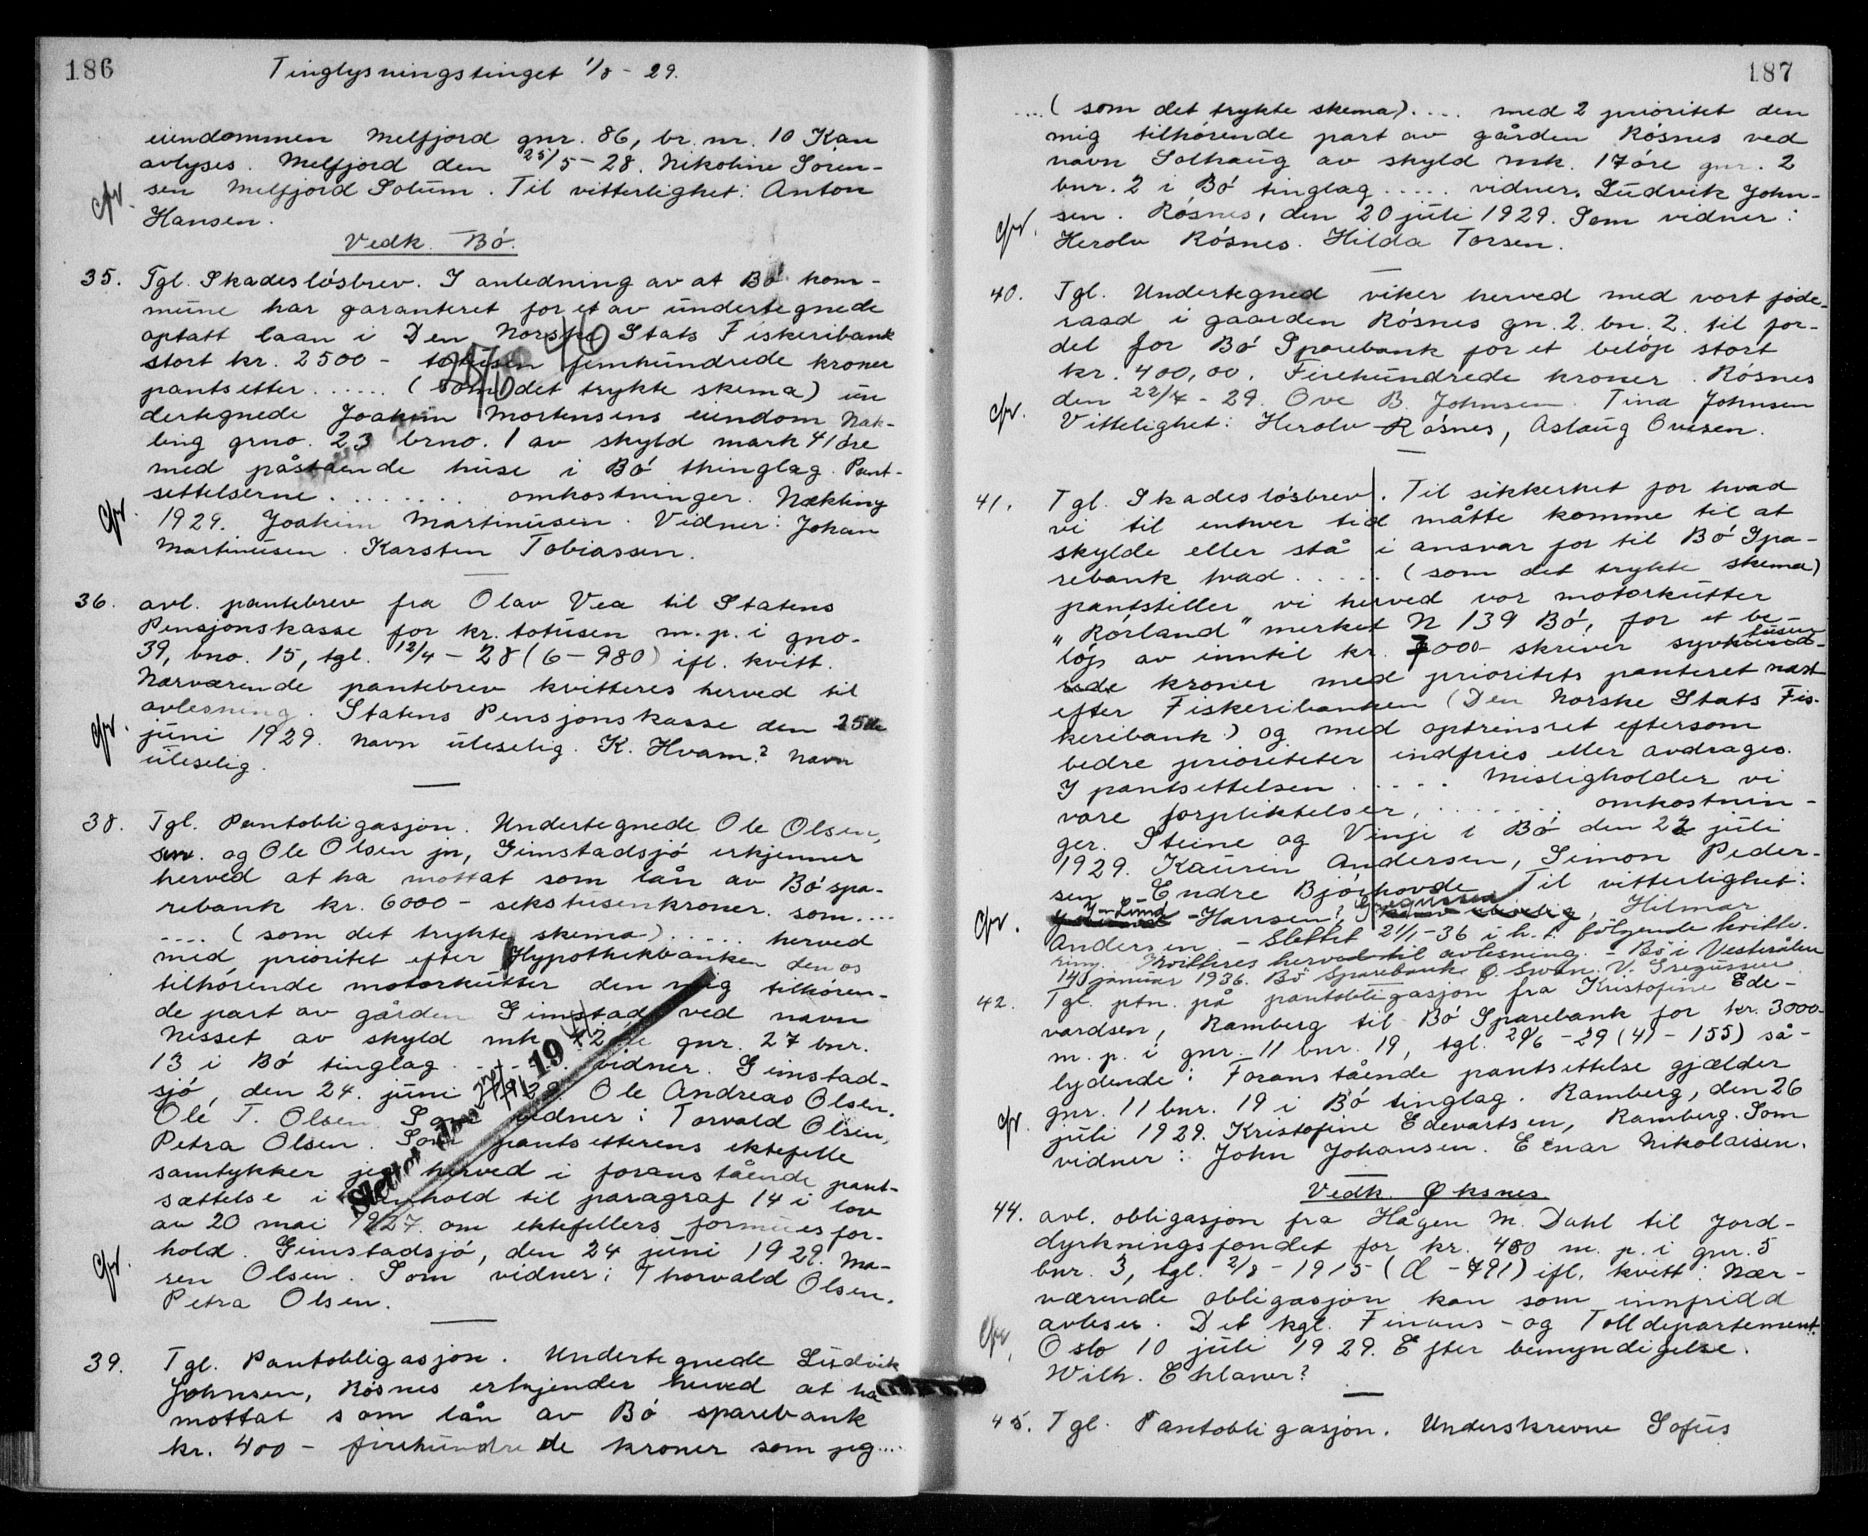 186
Tinglysningstinget 1/8 - 29.
eiendommen Melfjord gnr. 86, br. nr. 10 Kan
avlyses. Melfjord den 25/5 - 28. Nikoline Soren-
sen Melfjord Solum. Til vitterlighet: Anton
Hansen.
Vedk. Bó.
35. Tgl. Skadeslósbrev. I anledning av at Bó kom-
mune har garanteret for et av undertegnede
optatt laan i Den Norske Stats Fiskeribank
stort kr. 2500 - totusen femhundrede kroner
pantsetter ...... (som det trykte skema) un
dertegnede Joakim Mortensens eiendom Næk-
ling grno. 23 brno. 1 av skyld mark 41 óre
med påstående huse i Bó thinglag. Pant-
settelserne ........ omkostninger. Nækling
1929. Joakim Martinusen. Vidner: Johan
Martinusen. Karsten Tobiassen.
36. avl. pantebrev fra Olav Vea til Statens
Pensjonskasse for kr. totusen m. p. i gno.
39, bno. 15, tgl. 12/4 - 28 (6 - 980) ifl. kvitt.
Nærværende pantebrev kvitteres herved til
avlesning. Statens Pensjonskasse den 25de
juni 1929. Navn uleselig. K. Hvam? Navn
uleselig.
38. Tgl. Pantobligasjon. Undertegnede Ole Olsen,
sen. og Ole Olsen jn, Gimstadsjó erkjenner
herved at ha mottat som lån av Bó spa-
rebank kr. 6000 - sekstusenkroner. som ....
.... (som det trykte skema) ..... herved
med prioritet efter Hypothekbanken den os
tilhórende motorkutter den mig tilhóren-
de part av gården Gimstad ved navn
Nisset av skyld mk 12 gnr. 27 bnr.
13 i Bó tinglag. ..... vidner. Gimstad-
sjó, den 24. juni 1929. Ole Andreas Olsen.
Ole T. Olsen. Som vidner: Torvald Olsen,
Petra Olsen. Som pantsetterens ektefelle
samtykker jeg herved i foranstående pant-
sættelse i henhold til paragraf 14 i lov
av 20 mai 1927 om ektefellers formuesfor-
hold. Gimstadsjó, den 24 juni 1929. Ma-
ren Olsen. Som vidner: Thorvald Olsen.
Petra Olsen.
39. Tgl. Pantobligasjon. Undertegnede Ludvik
Johnsen, Rósnes erkjender herved at ha
mottat som lån av Bó sparebank
kr. 400 - firehundrede kroner som jeg ....
187
.... (som det trykte skema) .... med 2 prioritet den
mig tilhórende part av gården Rósnes ved
navn Solhaug av skyld mk. 17 óre gnr. 2
bnr. 2 i Bó tinglag ..... vidner. Ludvik John-
sen. Rósnes, den 20 juli 1929. Som vidner:
Herolv Rósnes. Hilda Torsen.
40. Tgl. Undertegned viker herved med vort fóde-
raad i gaarden Rósnes gn. 2. bn. 2. til for-
del for Bó Sparebank for et belóp stort
kr. 400,00. Firehundrede kroner. Rósnes
den 22/7 - 29. Ove B. Johnsen. Tina Johnsen
Vittelighet: Herolv Rósnes, Aslaug Ovesen.
41. Tgl. Skadeslósbrev. Til sikkerhet for hvad
vi til enhver tid måtte komme til at
skylde eller stå i ansvar for til Bó Spa-
rebank hvad ..... (som det trykte skema)
pantstiller vi herved vor motorkutter
"Rórland" merket N 139 Bó, for et be-
lóp av inntil kr. 7000 - skriver syvtusen
kroner med prioritets panteret næst
efter Fiskeribanken (Den Norske Stats Fis-
keribank) og med optrinsret eftersom
bedre prioriteter indfries eller avdrages.
I pantsettelsen ..... Misligholder vi
vore forpliktelser, ....... omkostnin-
ger. Steine og Vinje i Bó den 22 juli
1929. Kaurin Andersen, Simon Peder-
sen - Endre Bjórhovde. Til vitterlighet:
J-Lund -Hansen? Gregussen, Hilmar
Andersen. - Slettet 21/1-36 i h. t. fólgende kvitte-
ring. Kvitteres herved til avlesning. - Bó i Vesterålen
14 januar 1936. Bó Sparebank Ø. Svan. V. Gregussen.
42. Tgl. ptn. på pantobligasjon fra Kristofine Ede-
vardsen, Ramberg til Bó Sparebank for kr. 3000
m. p. i gnr. 11 bnr. 19, tgl. 20/6 - 29 (41 - 155) så-
lydende: Foranstående pantsettelse gjælder
gnr. 11 bnr. 19 i Bó tinglag. Ramberg, den 26
juli 1929. Kristofine Edevartsen, Ramberg. Som
vidner: John Johansen. Einar Nikolaisen.
Vedk. Øksnes
44. avl. obligasjon fra Hågen M. Dahl til Jord-
dyrkningsfondet for kr. 480 m. p. i gnr. 5
bnr. 3, tgl. 2/8 - 1915 (d - 791) ifl. kvitt: Nær-
værende obligasjon kan som innfridd
avleses. Det kgl. Finans- og Tolldepartement.
Oslo 10 juli 1929. Efter bemyndigelse.
Wilh. Eklaner?
45. Tgl. Pantobligasjon. Underskrevne Sofus